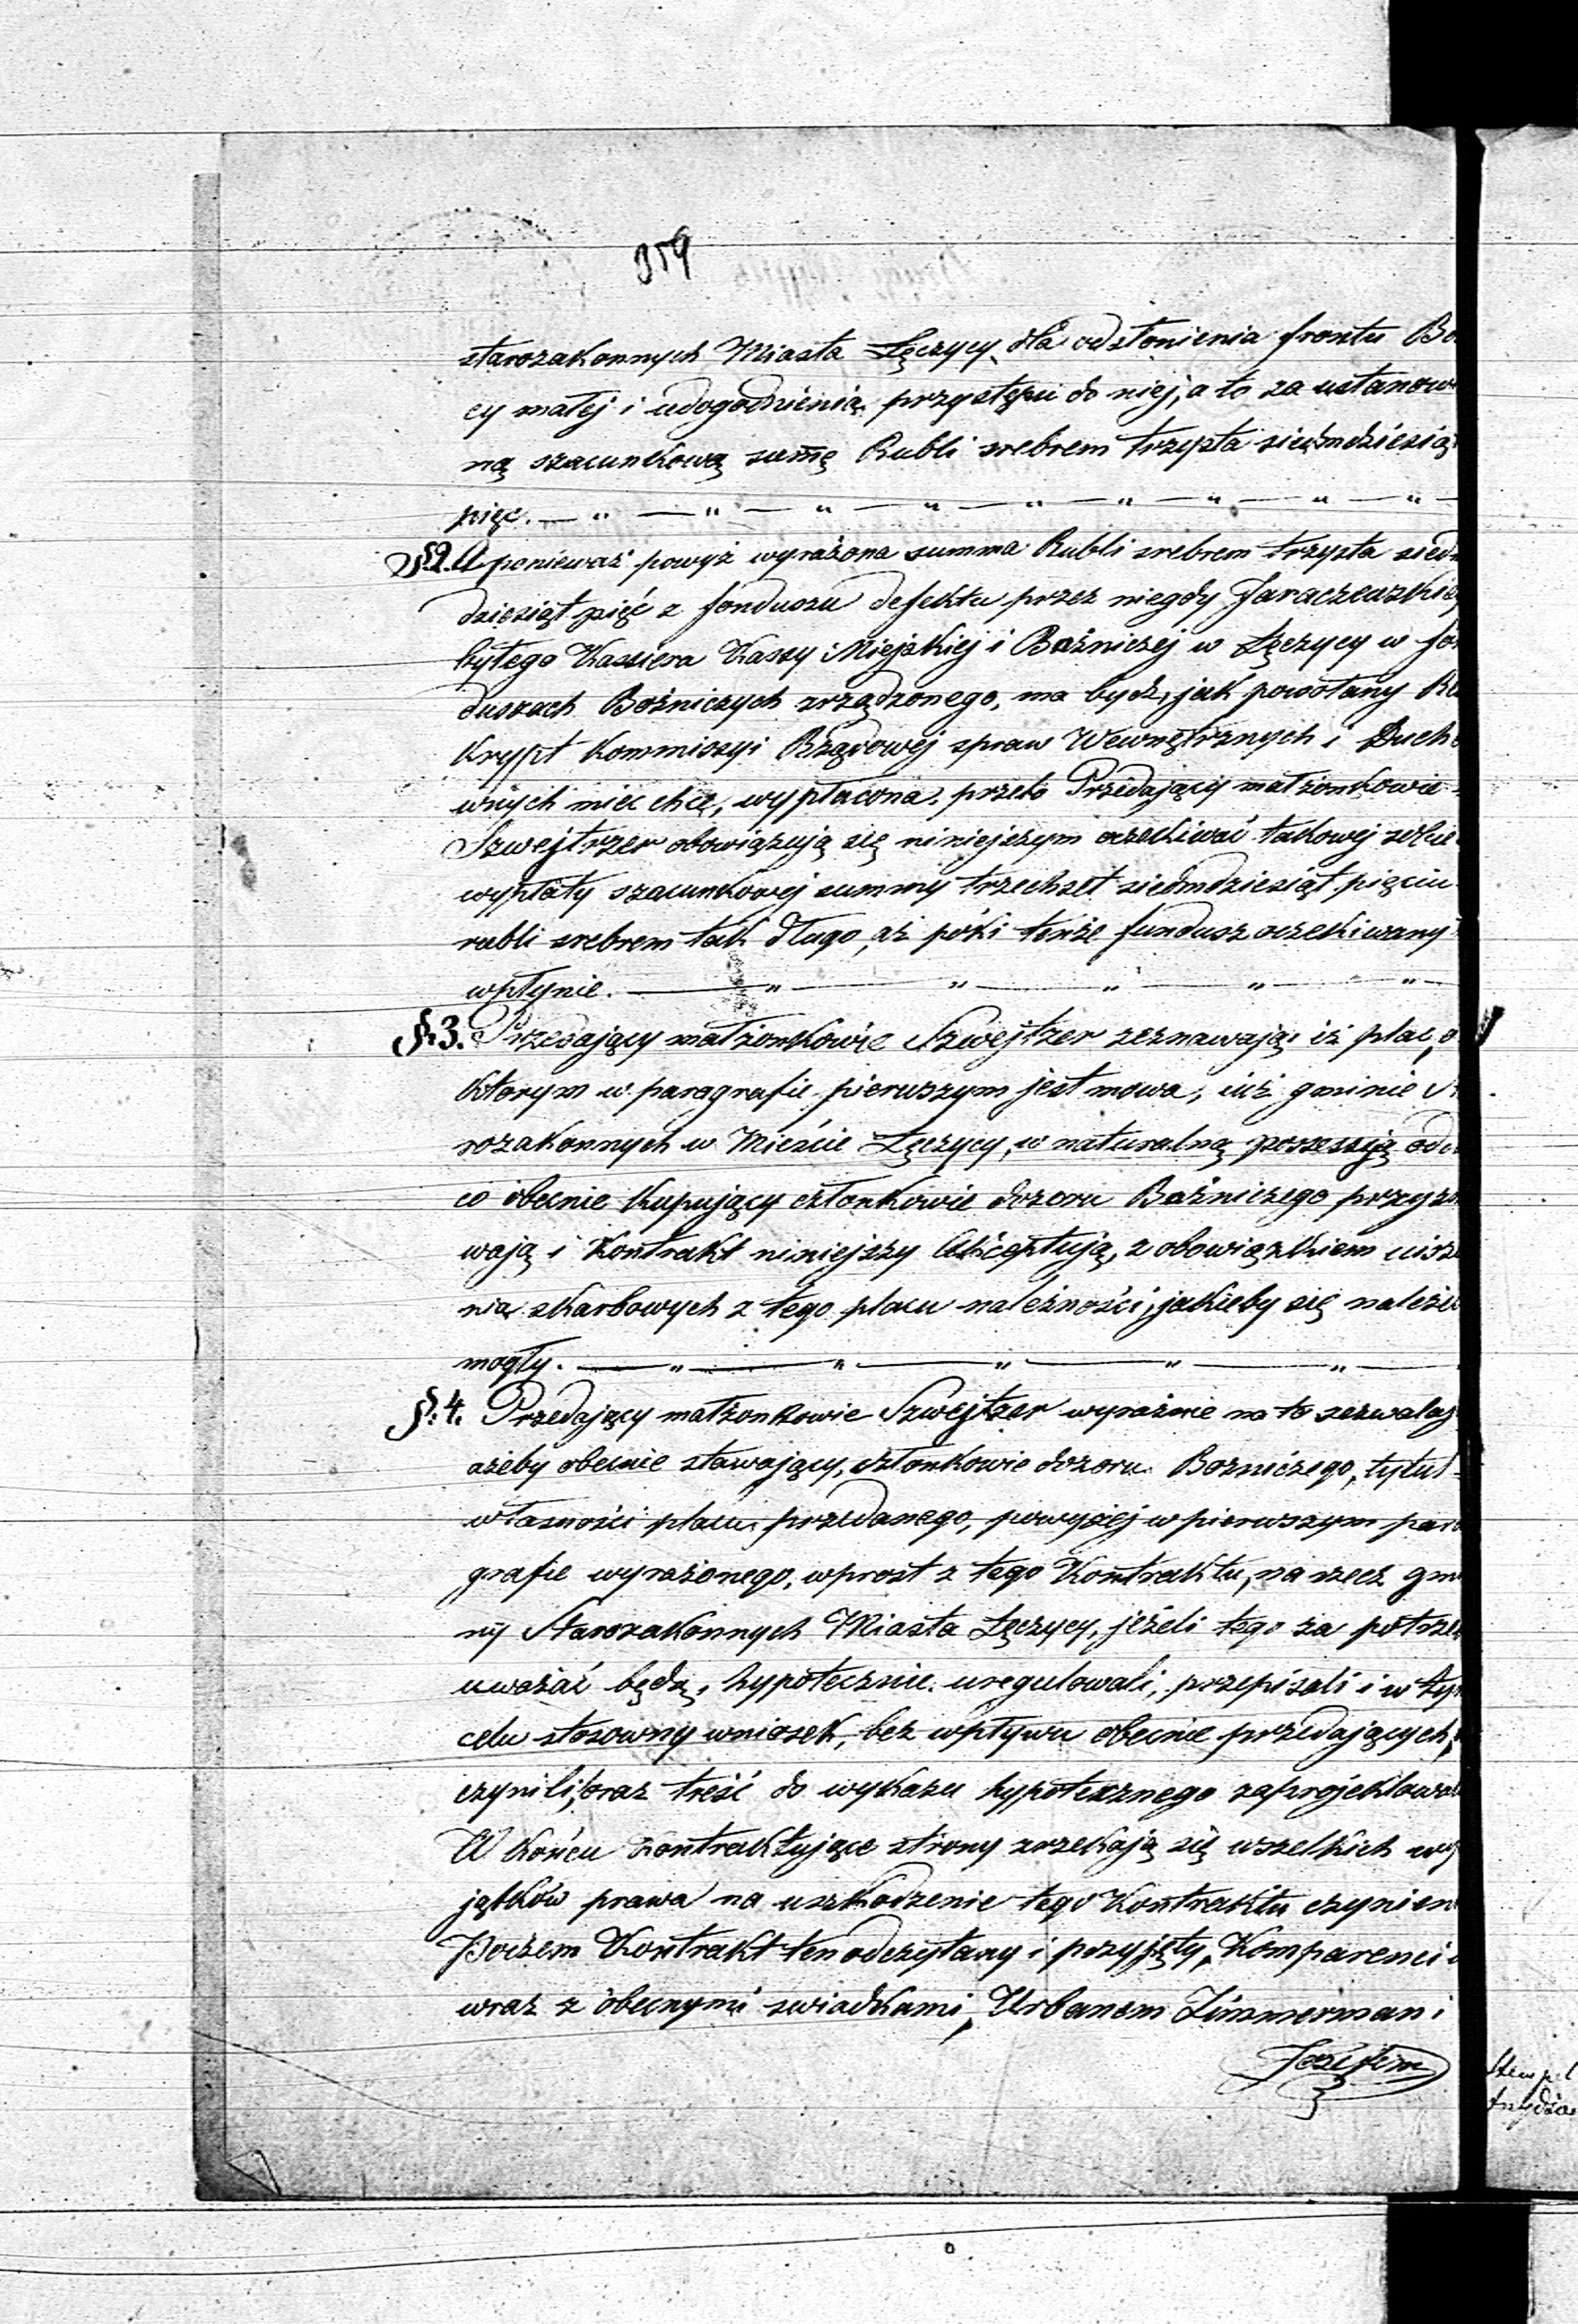 359
starozakonnych Miasta Łęczycy, dla odsłonienia frontu Bo
cy małej i udogodnienia przystępu do niej, a to za ustanow
ną szacunkową sumę Rubli srebrem trzysta siedmdziesią
pięć. — " — " — " — " — " — " — " — " — " —
§ 2. A ponieważ powyż wyrażona summa Rubli srebrem trzysta siedm
dziesiąt pięć z funduszu defektu przez niegdy Jaraczewskie
byłego Kassiera Kassy Miejskiej i Bożniczej w Łęczycy w fun
duszach Bożniczych zrządzonego, ma bydź, jak powołany Re
skrypt Kommissyi Rządowej spraw Wewnętrznych i Ducho
wnych mieć chce, wypłacona, przeto Przedający małżonkowie
Szwejtzer obowiązują się niniejszym oczekiwać takowej
wypłaty szacunkowej summy trzechset siedmdziesiąt pięciu
rubli srebrem tak długo, aż póki tenże fundusz oczekiwany
wpłynie. — " — " — " — " — " —
§. 3. Przedający małżonkowie Szwejtzer zeznawają iż plac, o
którym w paragrafie pierwszym jest mowa, już gminie
rozakonnych w Mieście Łęczycy, w naturalną possessją odd
co obecnie Kupujący członkowie dozoru Bożniczego przyzn
wają i Kontrakt niniejszy Akceptują, z obowiązkiem uiszcze
nia skarbowych z tego placu należności, jakieby się należeć
mogły. — " — " — " — " — " —
§. 4. Przedający małżonkowie Szwejtzer wyraźnie na to zezwalaj
ażeby obecnie stawający, członkowie dozoru Bożniczego, tytuł
własności placu przedanego, powyżej w pierwszym para
grafie wyrażonego, wprost z tego Kontraktu, na rzecz gmi
ny Starozakonnych Miasta Łęczycy, jeżeli tego za potrze
uważać będą, hypotecznie uregulowali, przepisali i w tym
celu stosowny wniosek, bez wpływu obecnie przedających,
czynili, oraz treść do wykazu hypotecznego zaprojektowa
W końcu kontraktujące strony zrzekają się wszelkich wy
jątków prawa na uszkodzenie tego Kontraktu czynien
Poczem Kontrakt ten odczytany i przyjęty, Komparenci
wraz z obecnymi swiadkami, Urbanem Zimmerman i
Józefem
Stempel